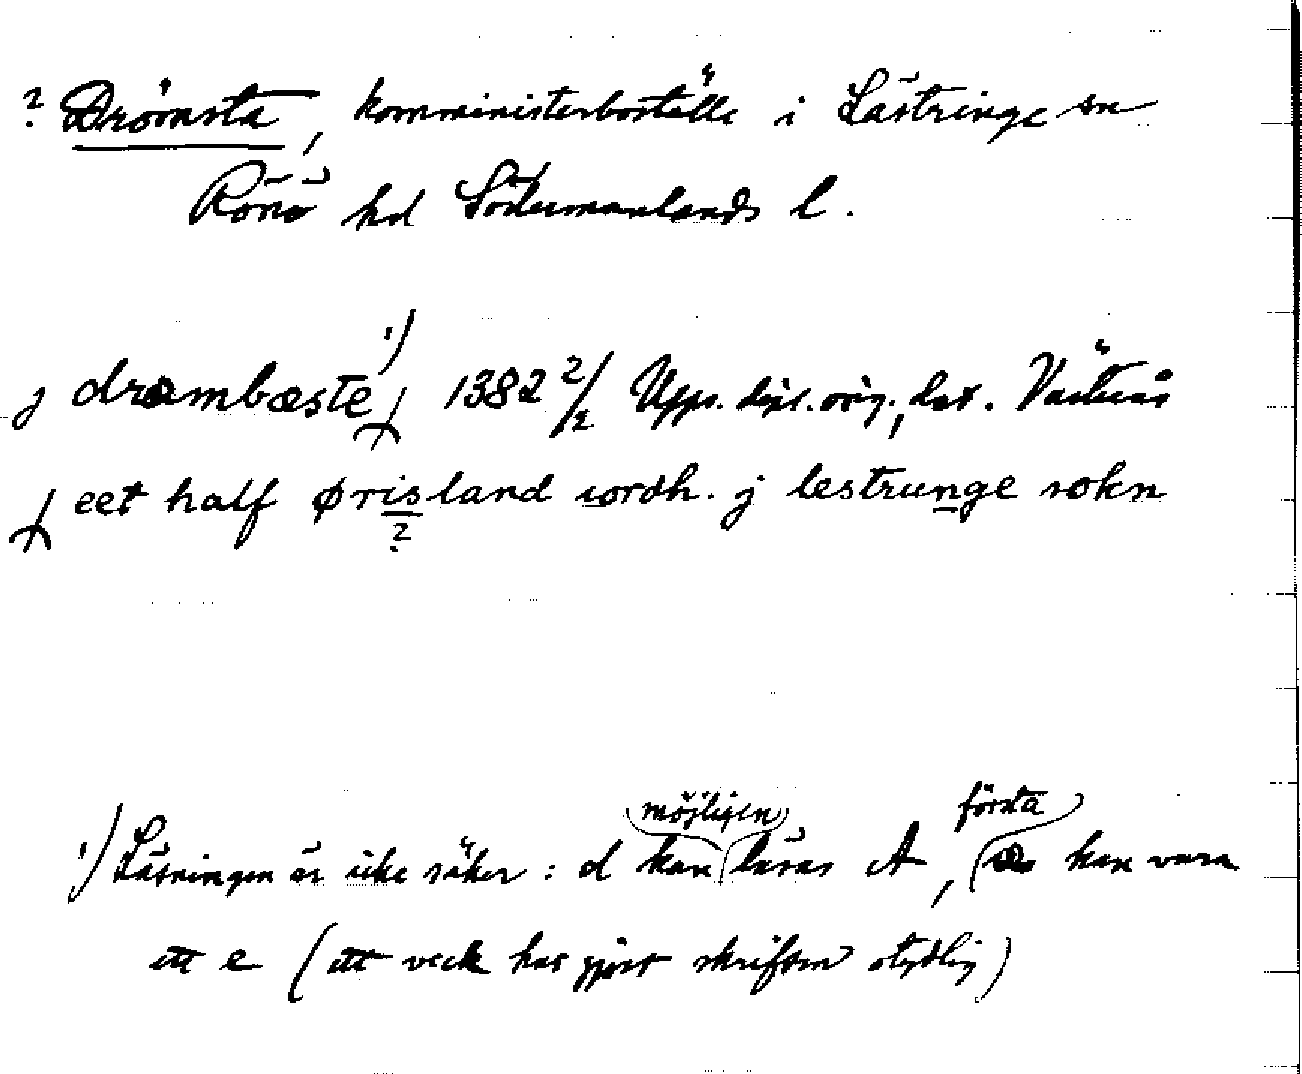 ? Drömsta, komministerboställe i Lästringe sn
Rönö hd Södermanlands l.
j dræmbæste ¹) 1382 2/2 Upps. dipl. orig., dat. Västerås
eet half ørisland iordh. j lestrunge sokn
?
möjligen första
¹) Läsningen är icke säker: d kan läsas ct, æ kan vara
ett e (ett veck har gjort skriften otydlig)